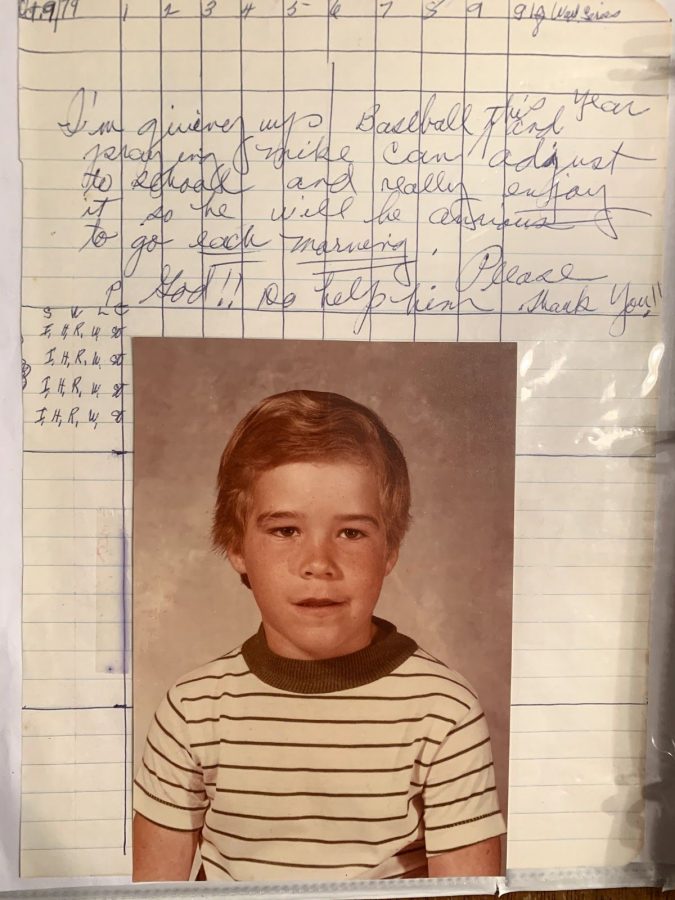 Oct. 9/79 1 2 3 4 5 6 7 8 9 World Series
I'm giving up Baseball this year
and
praying Mike can adjust
to school and really enjoy
it so he will be anxious
to go each morning. Please
God!! Do help him. Thank You!!
S W L
I, H, R, W,
I, H, R, W,
I, H, R, W,
I, H, R, W,